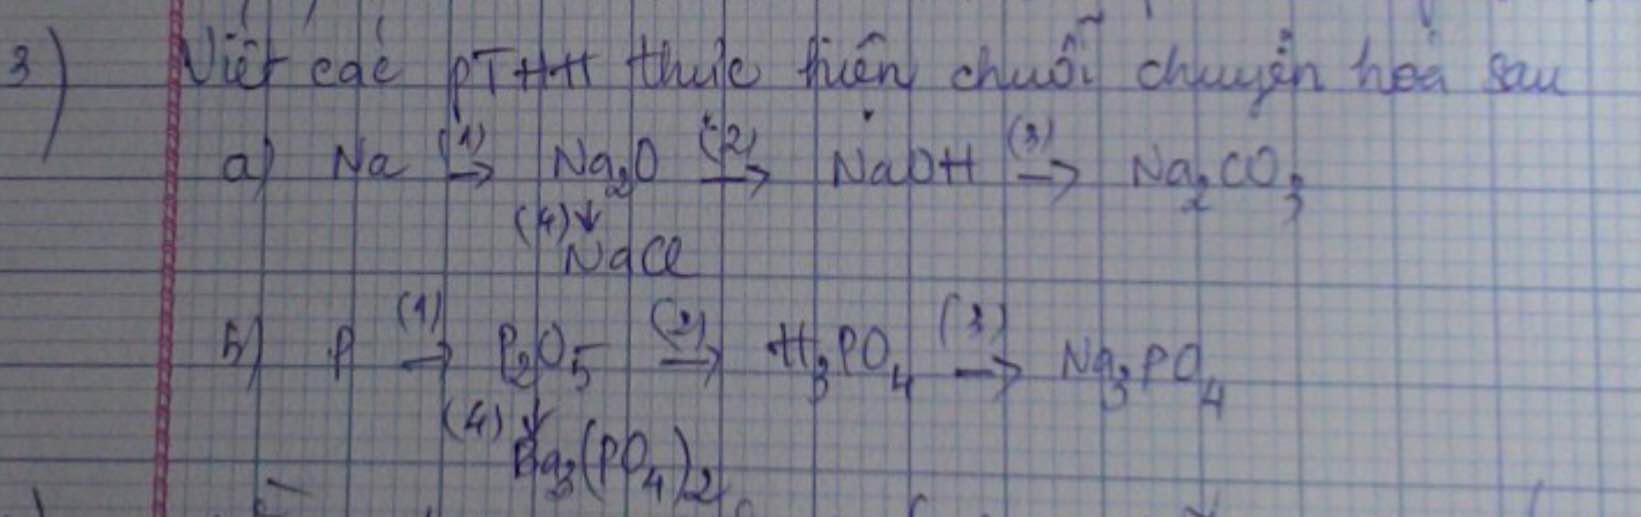 3) Viết các PTHH thực hiện chuỗi chuyển hoá sau
a) Na (1)→ Na₂O (2)→ NaOH (3)→ Na₂CO₃
(4)↓
NaCl
b) P (1)→ P₂O₅ (2)→ H₃PO₄ (3)→ Na₃PO₄
(4)↓
Ba₃(PO₄)₂